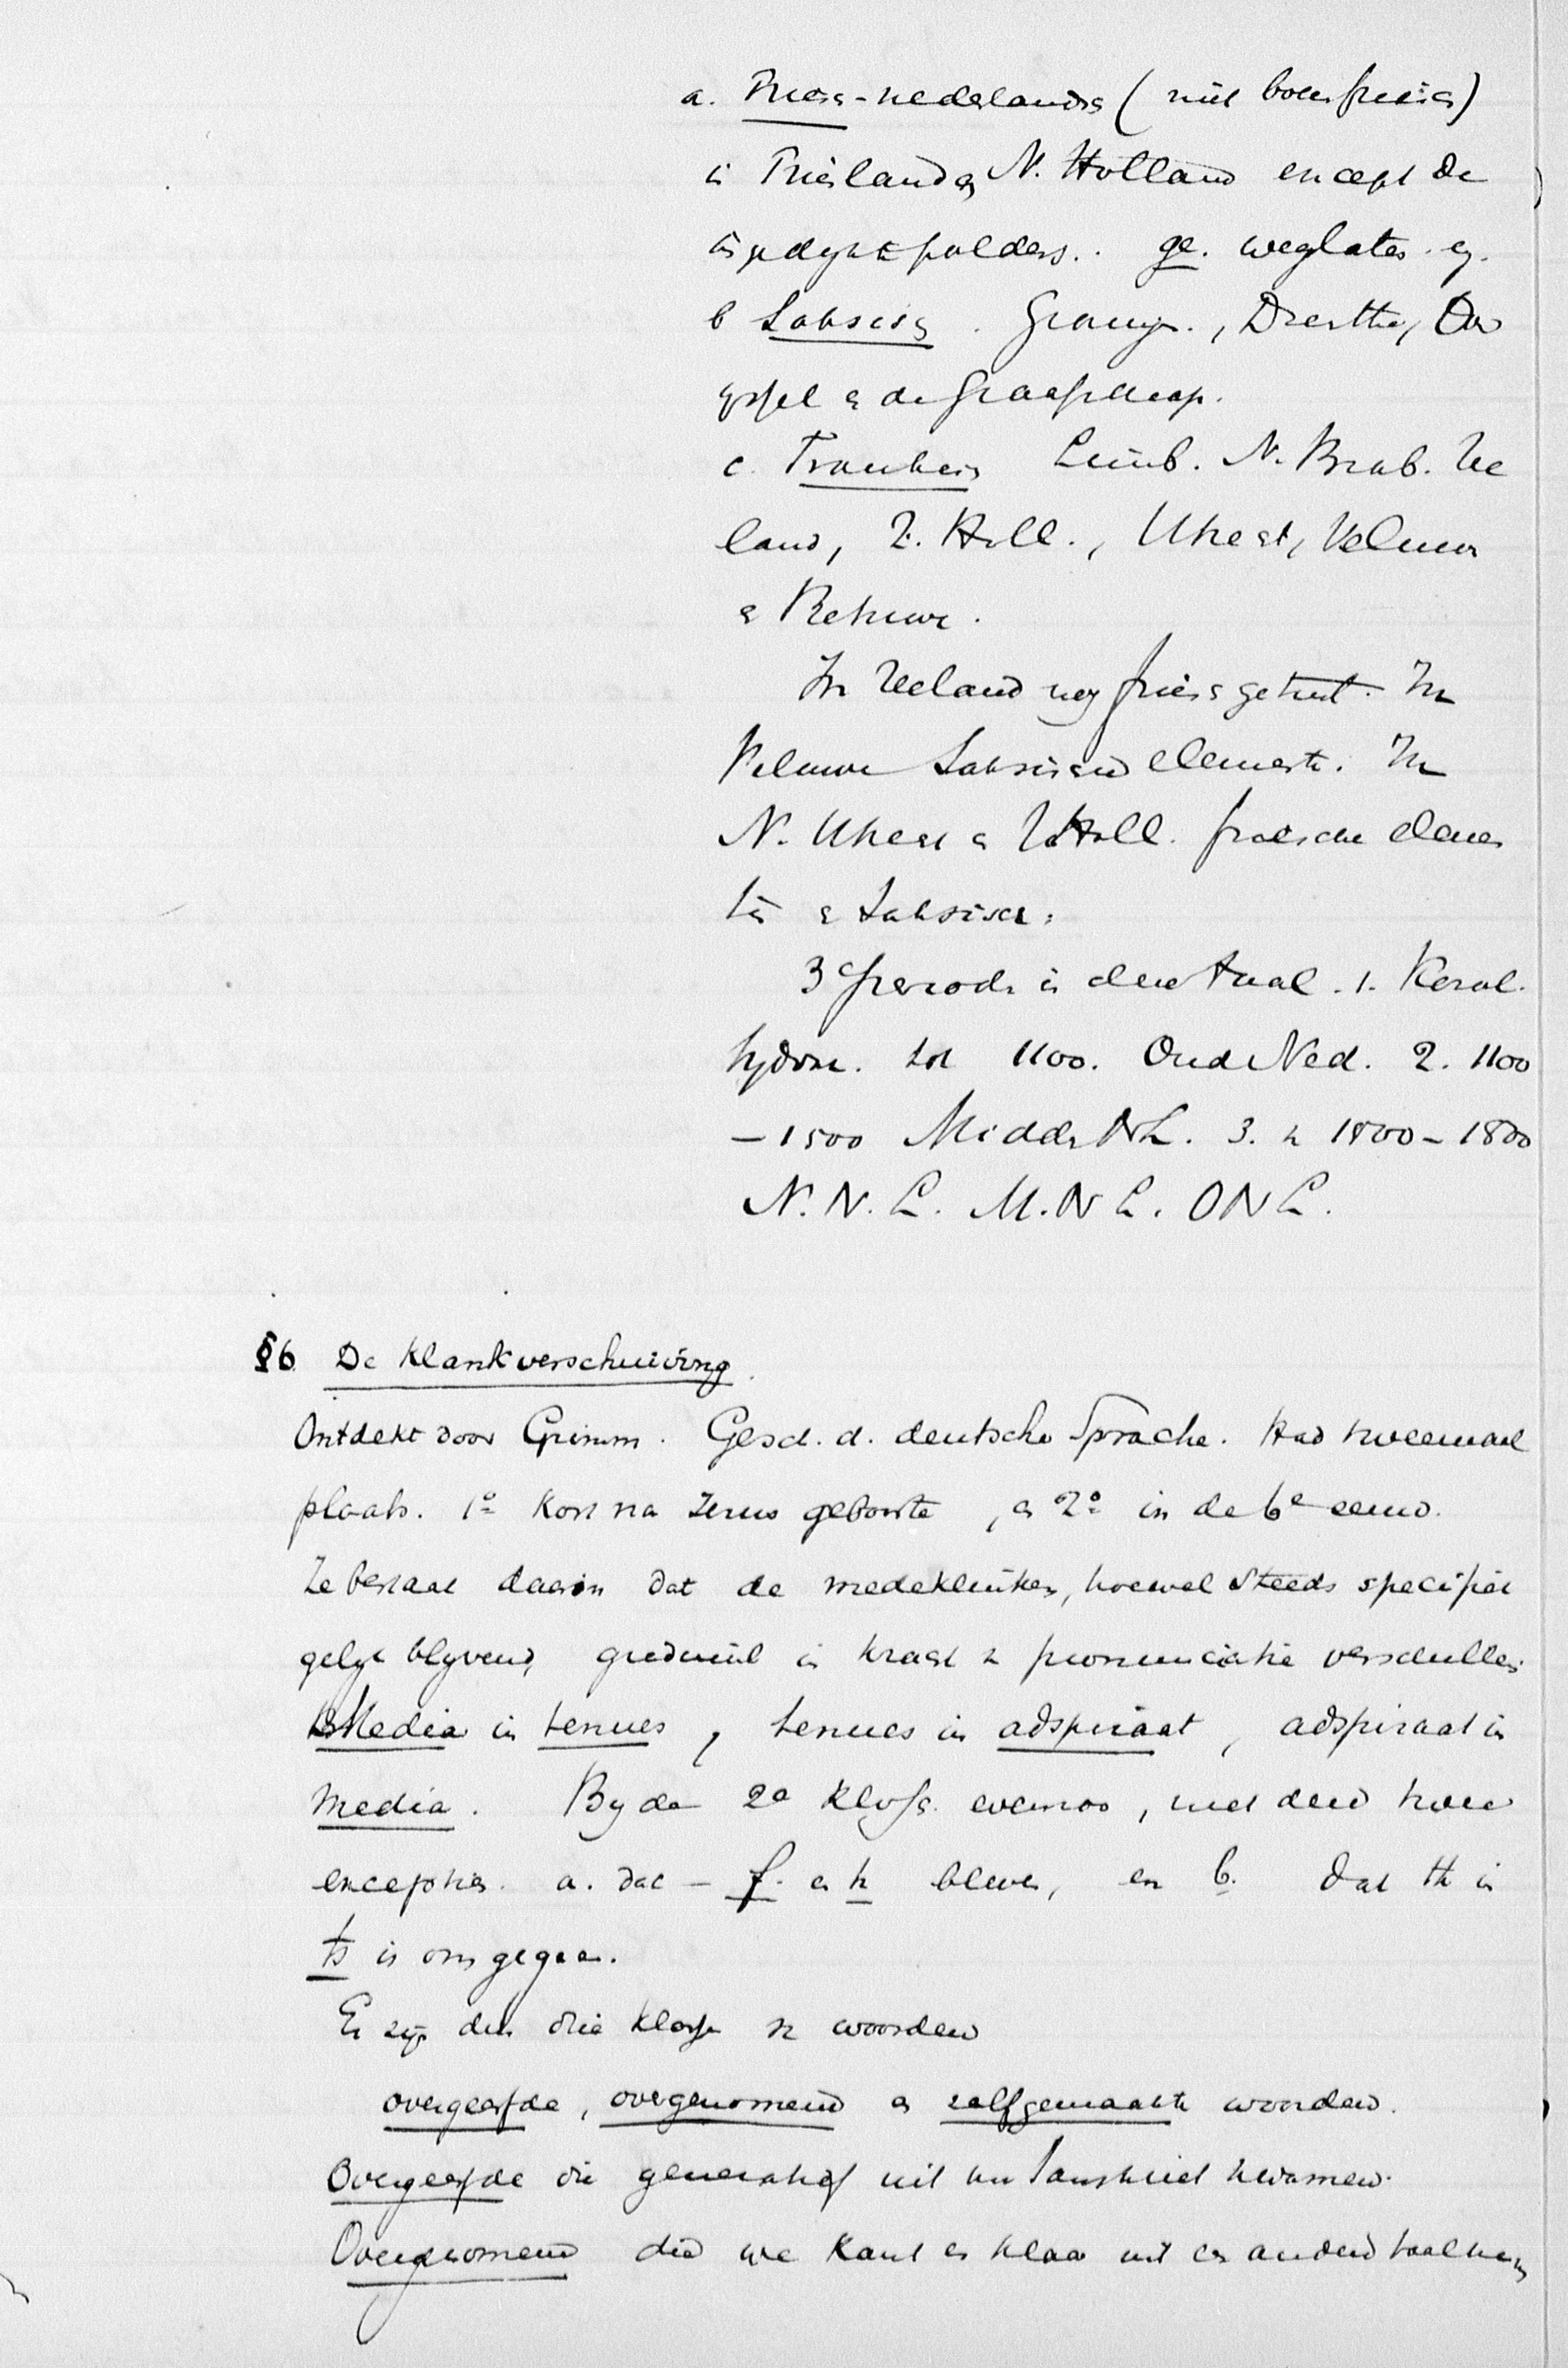 a. Friess-nederlands (niet boerfriesch)
in Friesland en N. Holland except de
polders. ge. weglaten.
b Saksisch. Groning., Drenthe, Over
yssel en de Graafschap.
c. Frankisch Limb. N. Brab. Zee
land, Z. Holl., Utrecht, Veluwe
en Betuwe.
In Zeeland nog friesch getint. In
Veluwe Saksische elementen. In
N. Utrecht en Z. Holl. friesche elemen
ten en Saksische.
3 perioden in deze taal. 1. Karol.
tot 1100. Oud Ned. 2. 1100
– 1500 Midd NL. 3. v 1500 – 1800
N. N. L. M. N L. ONL.
§6 De Klankverschuiving.
Ontdekt door Grimm. Gesch. d. deutsche Sprache. Had tweemaal
plaats. 1º kort na Jezus geboorte, en 2º in de 6e eeuw.
Ze bestaat daarin dat de medeklinkers, hoewel steeds specifiek
gelyk blyvend, gradueel in kracht v pronunciatie verschillen.
Media in tenues, tenues in adspiraat, adspiraat in
media. By de 2e klvsch. evenzoo, met deze twee
excepties. a. dat – f. en h bleven, en b. dat th in
ts is omgegaan.
Er zyn dus drie klassen v woorden
overgeerfde, overgenomene en zelfgemaakte woorden.
Overgeerfde die generatief uit het Sanskriet kwamen.
Overgenomene die we kant en klaar uit een andere taal nemen